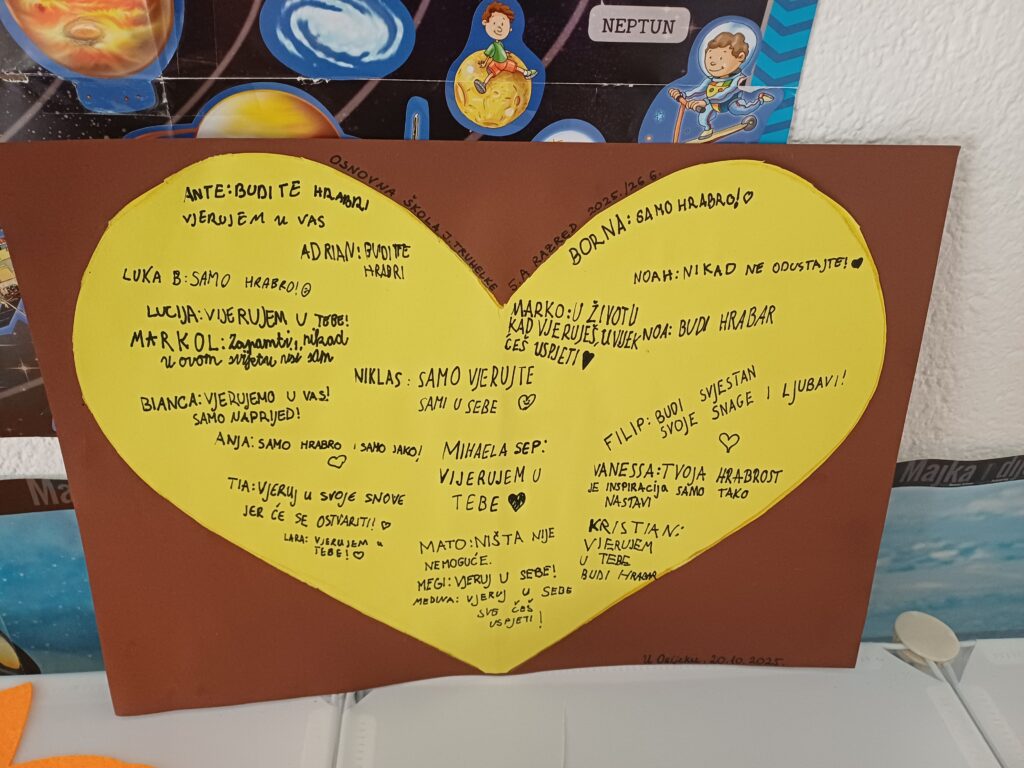 NEPTUN
OSNOVNA ŠKOLA J. TRUHELKE
5.A RAZRED 2025./26 G.
ANTE: BUDITE HRABRI
VJERUJEM U VAS
ADRIAN: BUDITE
HRABRI
LUKA B: SAMO HRABRO!
LUCIJA: VIJERUJEM U TEBE!
MARKO L: Zapamti, nikad
u ovom svijetu nisi sam
BIANCA: VJERUJEMO U VAS!
SAMO NAPRIJED!
ANJA: SAMO HRABRO I SAMO JAKO!
TIA: VJERUJ U SVOJE SNOVE
JER ĆE SE OSTVARITI!
LARA: VJERUJEM U
TEBE!
NIKLAS: SAMO VJERUJTE
SAMI U SEBE
MIHAELA SEP:
VIJERUJEM U
TEBE
MATO: NIŠTA NIJE
NEMOGUĆE.
MEGI: VJERUJ U SEBE!
MEDINA: VJERUJ U SEBE
SVE ĆEŠ
USPJETI!
BORNA: SAMO HRABRO!
NOAH: NIKAD NE ODUSTAJTE!
MARKO: U ŽIVOTU
KAD VJERUJEŠ, UVIJEK
ĆEŠ USPJETI
NOA: BUDI HRABAR
FILIP: BUDI SVJESTAN
SVOJE SNAGE I LJUBAVI!
VANESSA: TVOJA HRABROST
JE INSPIRACIJA SAMO TAKO
NASTAVI
KRISTIAN:
VJERUJEM
U TEBE
BUDI HRABAR
U Osijeku, 20.10.2025.
Ma
Majka i di